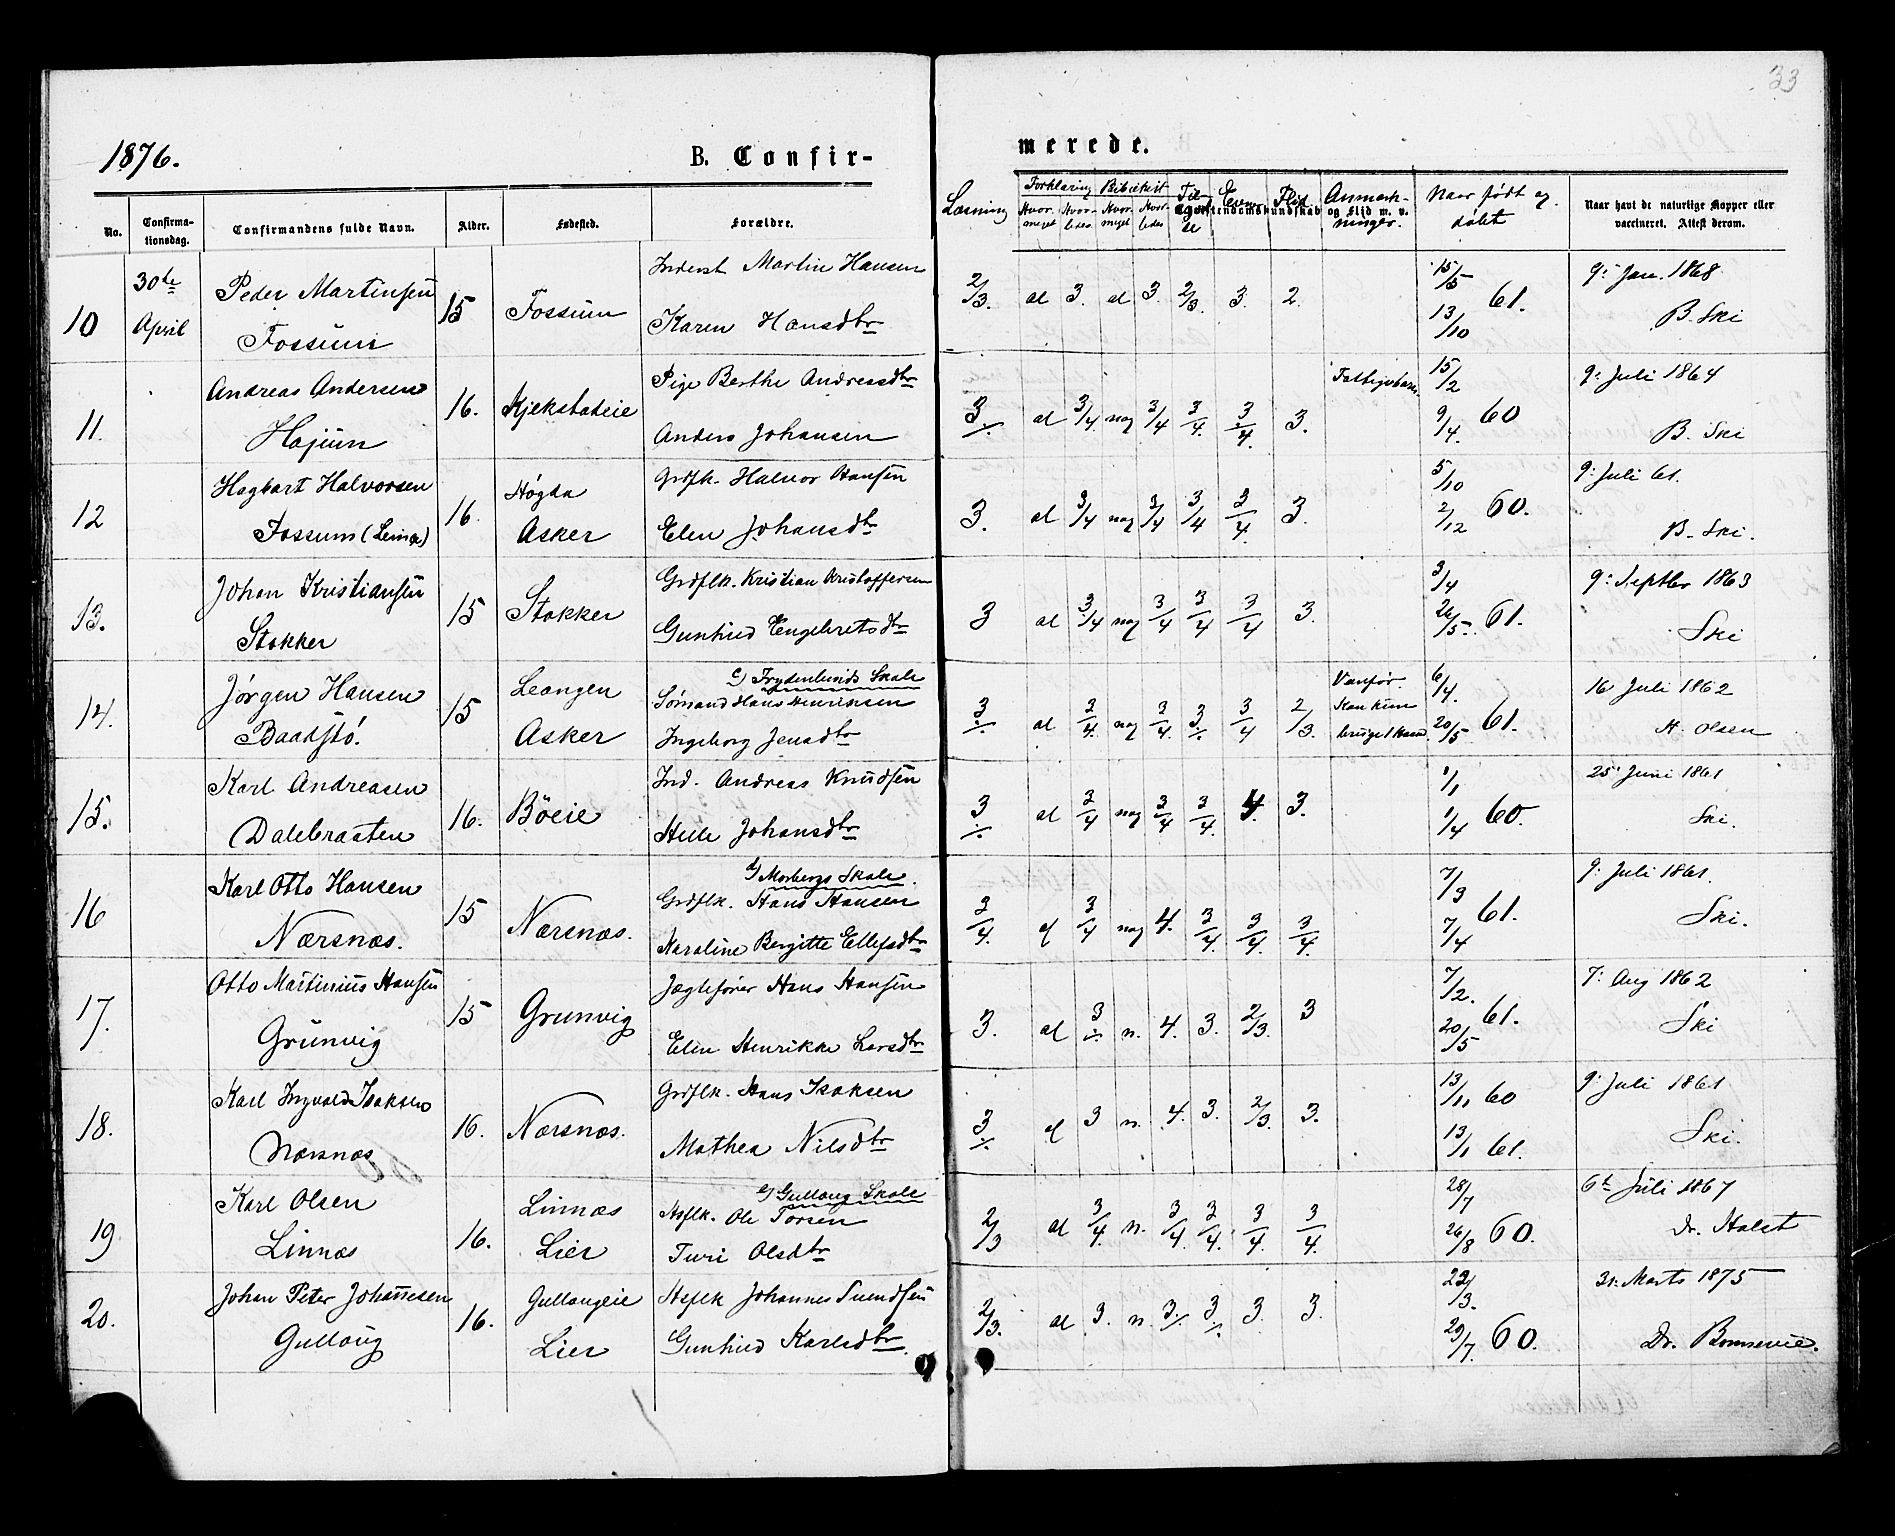 33
1876. B. Confir- merede.
No. Confirma-tionsdag. Confirmandens fulde Navn. Alder. Fødested. Forældre. Læsning Forklaring Hvor-meget Hvor-ledes Bibelhist Hvor-meget Hvor-ledes Flid Anmærk-ninger. Naar født og døbt Naar havt de naturlige Kopper eller vaccineret. Attest derom.
30te Inderst Martin Hansen 15/5 9: Jan. 1868
10 April Peder Martinsen 15 Fossum 2/3 al 3. al 3. 2/3. 3. 2. 61.
Fossum Karen Hansdtr 13/10 B. Ski
Andreas Andersen Pige Berthe Andreasdtr 15/2 9: Juli 1864
11. 16. Kjekstadeie 3/÷ al 3/4 nog 3/4 3/4. 3/4. 3. 60
Hajum Anders Johansen 9/4. B. Ski
Hagbart Halvorsen Høgda Grdflk. Halvor Hansen 5/10 9: Juli 61.
12 16. 3. al 3/4 nog 3/4 3/4 3/4. 3. 60.
Fossum Asker Elen Johansdtr 2/12 B. Ski.
Johan Kristiansen Grdflk. Kristian Kristoffersen 3/4 9: Septbr 1863
13. 15 Stokker 3 al 3/4 nog 3/4 3/4 3/4 3. 61.
Stokker Gunhild Engebretsdtr 26/5. Ski
c) Frydenlunds Skole
Jørgen Hansen Leangen Sømand Hans Henriksen Vanfør. 6/4. 16 Juli 1862
14. 15 3/÷ al 3/4. nog 3/4. 3/÷. 3/4 2/3. Kan kun 61.
Baadstø. Asker Ingeborg Jensdtr bruge 1 Haand. 20/5 H. Olsen
Karl Andreasen Ind. Andreas Knudsen 1/1 25: Juni 1861
15. 16. Böeie 3/÷ al 3/4 nog 3/4 3/4. 4. 3. 60.
Dalebraaten Helle Johansdtr 1/4 Ski.
d) Morbergs Skole.
Karl Otto Hansen Grdflk. Hans Hansen 7/3 9: Juli 1861.
16 15 Nærsnæs. 3/4. 3/4 nog 4. 3/4. 3/4. 3/4. 61.
Nærsnæs. Karoline Bergitte Ellefsdtr 7/4 Ski.
Otto Martinius Hansen Jægtefører Hans Hansen 7/2. 7: Aug 1862
17. 15 Grunvig 3. al 3/÷ n. 4. 3. 2/3. 3 61.
Grunvig Elen Henrikke Larsdtr 20/5 Ski
Karl Ingvald Isaksen Grdflk. Hans Isaksen 13/11 60 9: Juli 1861
18. 16. Nærsnæs. 3/÷ 3 n. 4. 3. 2/3. 3.
Nærsnæs Mathea Nilsdtr 13/1 61. Ski.
e) Gullaug Skole
Karl Olsen Linnæs Hsflk. Ole Torsen 28/7 6te Juli 1867
19 16. 2/3 al 3/4. n. 3/4 3/4. 3/4. 3/4. 60.
Linnæs Lier Turi Olsdtr 26/8 Dr. Holst
Johan Peter Johannesen Gullaugeie Hsflk Johannes Svendsen 22/3. 31. Marts 1875
20. 16. 2/3. al 3. n. 3/÷ 3/÷ 3. 3. 60.
Gullaug Lier Gunhild Karlsdtr. 29/7. Dr. Bonnevie.